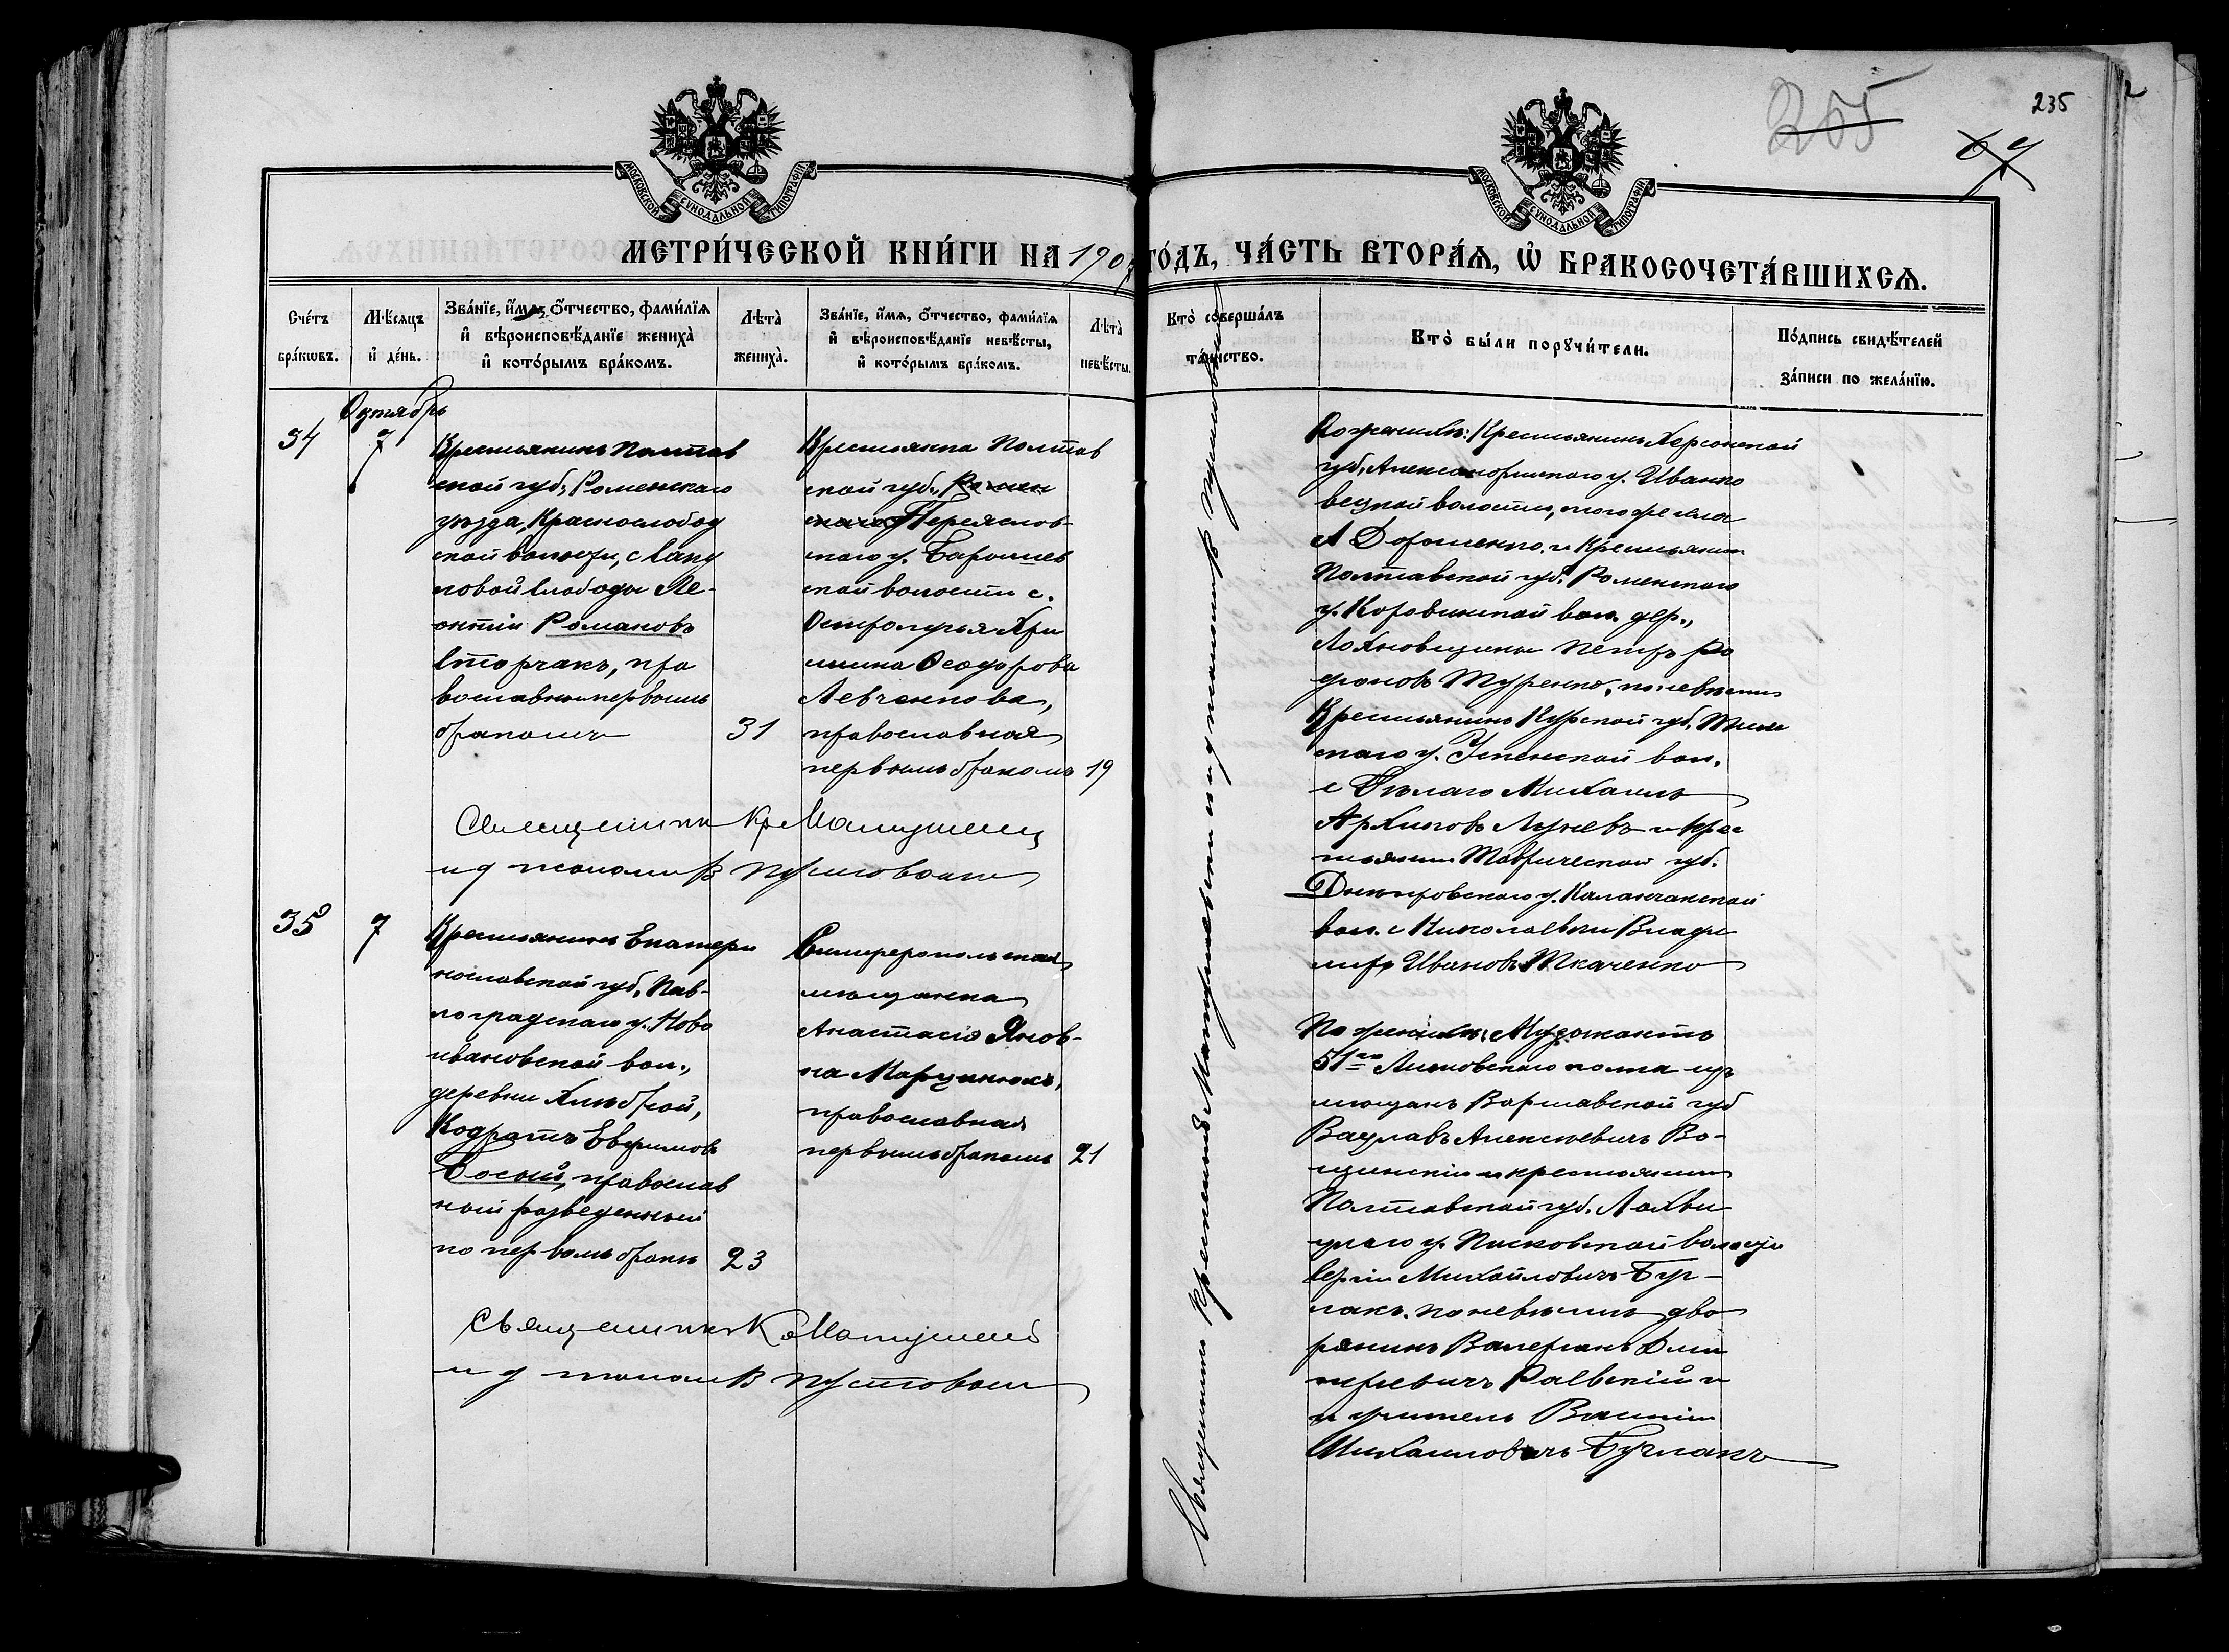 235
265
69
МОСКОВСКОЙ СУНОДАЛЬНОЙ ТИПОГРАФІИ
МОСКОВСКОЙ СУНОДАЛЬНОЙ ТИПОГРАФІИ
МЕТРИ́ЧЕСКОЙ КНИ́ГИ НА 190 ГО́ДЪ, ЧА́СТЬ ВТОРА́Ѧ, Ѡ҆ БРАКОСОЧЕТА́ВШИХСѦ.
Сче́тъ бра́кѡвъ.
Мѣ́сяцъ и҆ де́нь.
Зва́нїе, и҆́мѧ, ѻ҆́тчество, фами́лїѧ и҆ вѣроисповѣ́данїе жениха̀ и҆ кото́рымъ бра́комъ.
Лѣта̀ жениха̀.
Зва́нїе, и҆́мѧ, ѻ҆́тчество, фами́лїѧ и҆ вѣроисповѣ́данїе невѣ́сты, и҆ кото́рымъ бра́комъ.
Лѣта̀ невѣ́сты.
Кто̀ соверша́лъ та́инство.
Кто̀ бы́ли порꙋчи́тели.
По́дпись свидѣ́телей за́писи по жела́нїю.
Октябрь
34
7
Крестьянинъ Полтав
ской губ., Роменскаго
уѣзда, Краснослобод
ской волости, с Лану
новой Слободы Ле-
онтій Романовъ
Сторчакъ, пра
вославный первымъ
бракомъ
31
Крестьянка Полтав
ской губ., Ромен
скаго Переяслов-
скаго у. Барышев
ской волости с.
Остролучья Хри
стина Ѳеодорова
Левченкова,
православная
первымъ бракомъ
19
Священникъ Кр Матушев
и д псаломщ В Пустовой
Священникъ Крискентъ Матушевскій и и д псаломщ В Пустовой
По женихѣ: Крестьянинъ Херсонской
губ., Александрійскаго у. Иванко
вецкой волости, того же села
А Дорошенко и Крестьянин
Полтавской губ. Роменскаго
у. Коровинской вол. дер.,
Лохновщины Петръ Ро
діоновъ Туренко, по невѣстѣ
Крестьянинъ Курской губ.
скаго у. Успенской вол.
с Бѣлаго Михаилъ
Архиповъ Луневъ и крес
тьянин Таврической губ.
Днепровскаго у. Каланчакской
вол. с Николаевки Влади
миръ Ивановъ Ткаченко
35
7
Крестьянинъ Екатери
нославской губ., Пав-
лоградскаго у. Ново
ивановской вол.,
деревни Хлѣбной,
Кодратъ Евфимовъ
Босый, православ
ный разведенный
по первомъ бракѣ
23
Симферопольская
мѣщанка
Анастасія Янов-
на Марцинюкъ,
православная
первымъ бракомъ
21
Священникъ К Матушев
и д псалом В Пустовой
По женихѣ: Музыкантъ
51го Литовскаго полка изъ
мѣщанъ Варшавской губ
Вацлавъ Алексѣевичъ Во-
щинскій и крестьянин
Полтавской губ. Лохви
цкаго у. Песковской волости
Сергій Михайловичъ Бур-
лакъ. по невѣстѣ дво
рянинъ Валеріанъ Дми
тріевичъ Раевскій и
и учитель Василій
Михайловичъ Бурлакъ